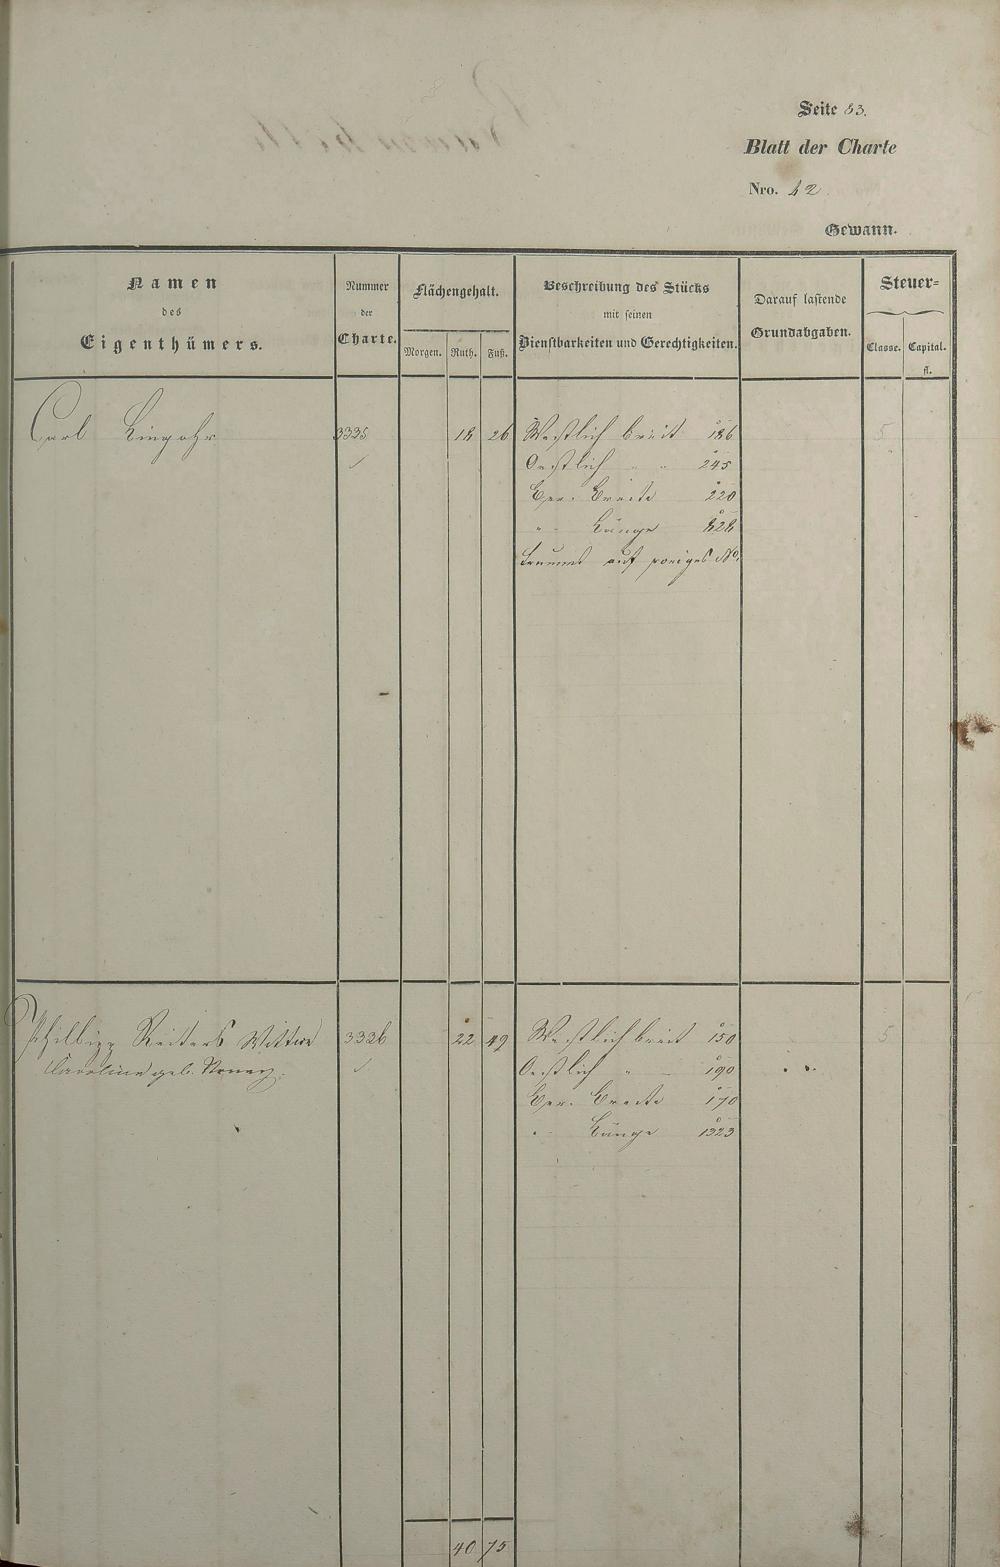 Seite 83.
Blatt der Charte
Nro. 42
Gewann.
Namen
des
Eigenthümers.
Nummer
der
Charte.
Flächengehalt.
Morgen. Ruth. Fuß.
Beschreibung des Stücks
mit seinen
Dienstbarkeiten und Gerechtigkeiten.
Darauf lastende
Grundabgaben.
Steuer-
Classe. Capital.
fl.
Carl 3335 18 26 Westlich breit 186 5
Oestlich " " 245
Ger. Breite 220
" Länge 828
auf voriges No.
Phillipp Reiters Wittwe 3336 22 49 Westlich breit 150 5
Caroline geb.
Oestlich " 190
Ger. Breite 170
" Länge 1323
40 75